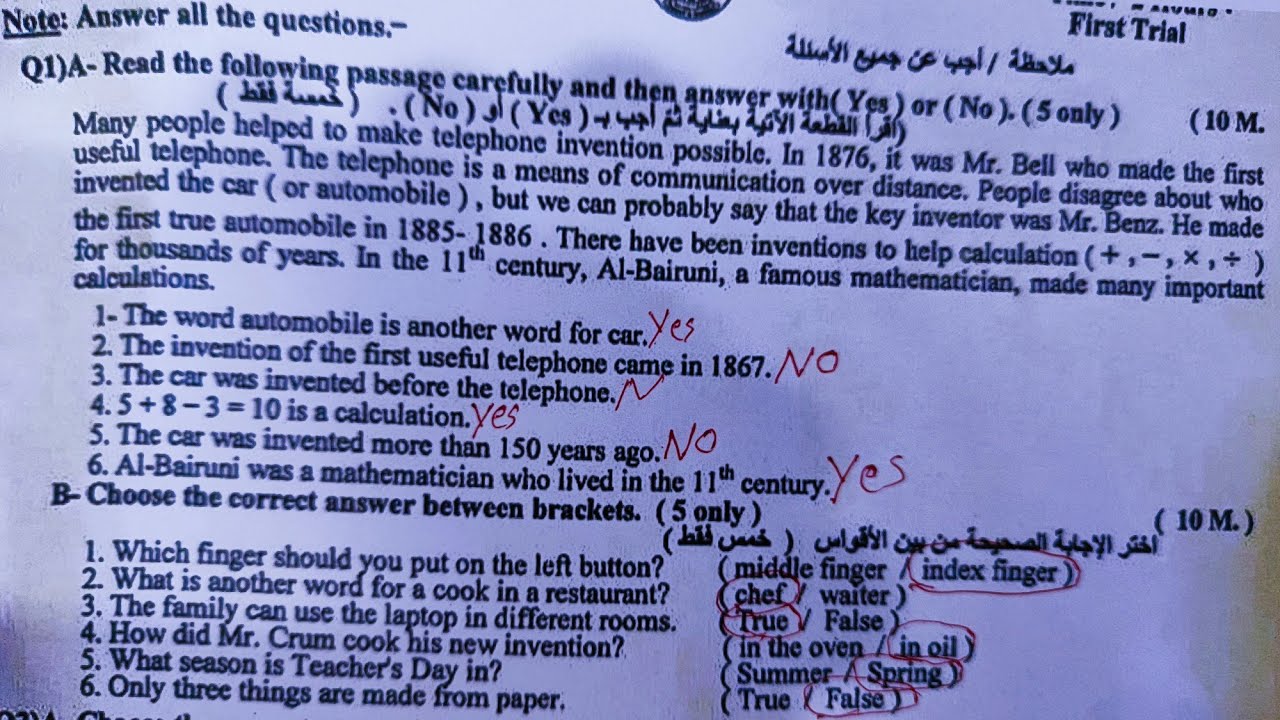 Note: Answer all the questions.-
First Trial
ملاحظة / أجب عن جميع الأسئلة
Q1)A- Read the following passage carefully and then answer with( Yes ) or ( No ). ( 5 only ) ( 10 M.
(اقرأ القطعة الآتية بعناية ثم أجب بـ ( Yes ) أو ( No ) . ( خمسة فقط )
Many people helped to make telephone invention possible. In 1876, it was Mr. Bell who made the first
useful telephone. The telephone is a means of communication over distance. People disagree about who
invented the car ( or automobile ) , but we can probably say that the key inventor was Mr. Benz. He made
the first true automobile in 1885- 1886 . There have been inventions to help calculation ( + , − , × , ÷ )
for thousands of years. In the 11th century, Al-Bairuni, a famous mathematician, made many important
calculations.
1- The word automobile is another word for car. Yes
2. The invention of the first useful telephone came in 1867. NO
3. The car was invented before the telephone. N
4. 5 + 8 – 3 = 10 is a calculation. Yes
5. The car was invented more than 150 years ago. NO
6. Al-Bairuni was a mathematician who lived in the 11th century. Yes
B- Choose the correct answer between brackets. ( 5 only ) ( 10 M. )
اختر الإجابة الصحيحة من بين الأقواس ( خمس فقط )
1. Which finger should you put on the left button? ( middle finger / index finger )
2. What is another word for a cook in a restaurant? ( chef / waiter )
3. The family can use the laptop in different rooms. ( True / False )
4. How did Mr. Crum cook his new invention? ( in the oven / in oil )
5. What season is Teacher's Day in? ( Summer / Spring )
6. Only three things are made from paper. ( True / False )